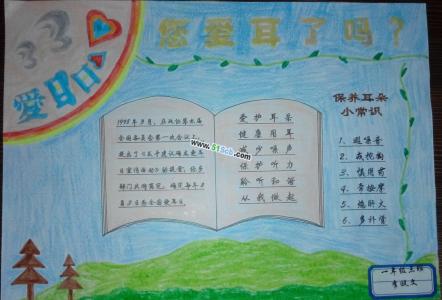 33
愛日日
您爱耳了吗？
1998年3月，在政协第九届
全国委员会第一次会议上，
提出了《关于建议确立爱耳
日宣传活动》的提案，经多
部门共同商定，确定每年3
月3日为全国爱耳日。
爱护耳朵
健康用耳
减少噪声
保护听力
聆听和谐
从我做起
www.51Sch.com
保养耳朵
小常识
1. 避噪音
2. 戒挖掏
3. 慎用药
4. 常按摩
5. 熄肝火
6. 多补肾